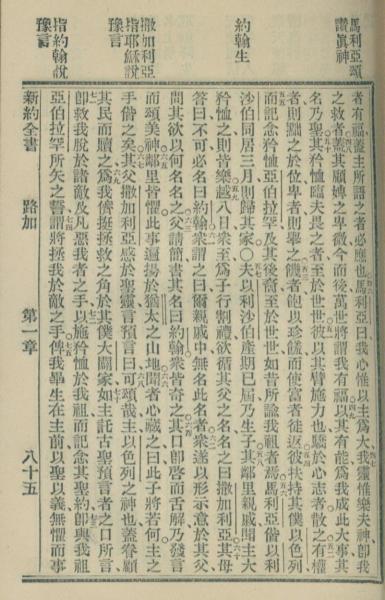 馬利亞頌
讚眞神
約翰生
撒加利亞
指耶穌說
豫言
指約翰說
豫言
者有福蓋主所語之者必應也馬利亞曰我心惟以主爲大我靈惟樂夫神卽我
之救者蓋其顧婢之卑微今而後萬世將謂我有福以其有能爲我成此大事其
名乃聖其矜恤臨夫畏之者至於世世彼以其臂施力也驕於心志者散之有權
者則黜之於位卑者則舉之饑者飽以珍饈而使富者徒返彼扶持其僕以色列
而記念矜恤亞伯拉罕及其後裔至於世世如昔所諭我祖者焉馬利亞偕以利
沙伯同居三月則歸其家○夫以利沙伯產期已屆乃生子其鄰里親戚聞主大
矜恤之則皆樂越八日衆至爲子行割禮欲循其父之名名曰撒加利亞其母
答曰不可必名曰約翰衆謂之曰爾親戚中無名此名者衆遂以形示意於其父
問其欲以何名名之父請簡書其名曰約翰衆皆奇之其口卽啓而舌解乃發言
而頌美神鄰里皆懼此事遍揚於猶太之山地聞者心藏之曰此子將若何主之
手偕之矣其父撒加利亞感於聖靈預言曰可頌哉主以色列之神也蓋眷顧
其民而贖之爲我儕挺拯救之角於其僕大闢家如主託古聖預言者之口所言
卽救我脫於諸敵及凡惡我者之手以施矜恤於我祖而記念其聖約卽與我祖
亞伯拉罕所矢之誓謂將拯我於敵之手俾我畢生在主前以聖以義無懼而事
新約全書 路加 第一章 八十五